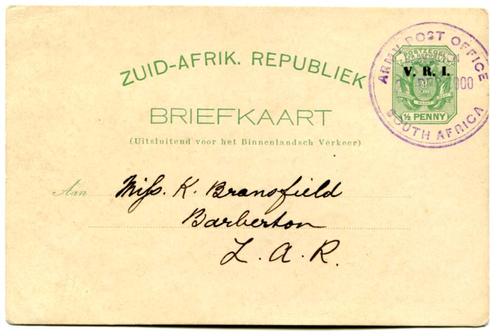 ZUID-AFRIK. REPUBLIEK
BRIEFKAART
(Uitsluitend voor het Binnenlandsch Verkeer)
ARMY POST OFFICE
SOUTH AFRICA
V. R. I.
½ PENNY
Aan Miss K. Bransfield
Barberton
Z. A. R.